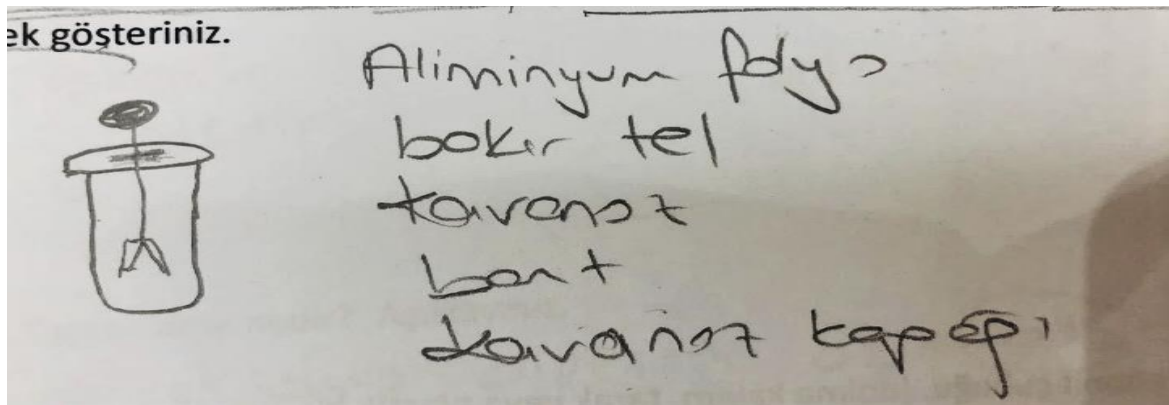 ek gösteriniz.
Aliminyum folyo
bakır tel
kavanoz
bant
kavanoz kapağı